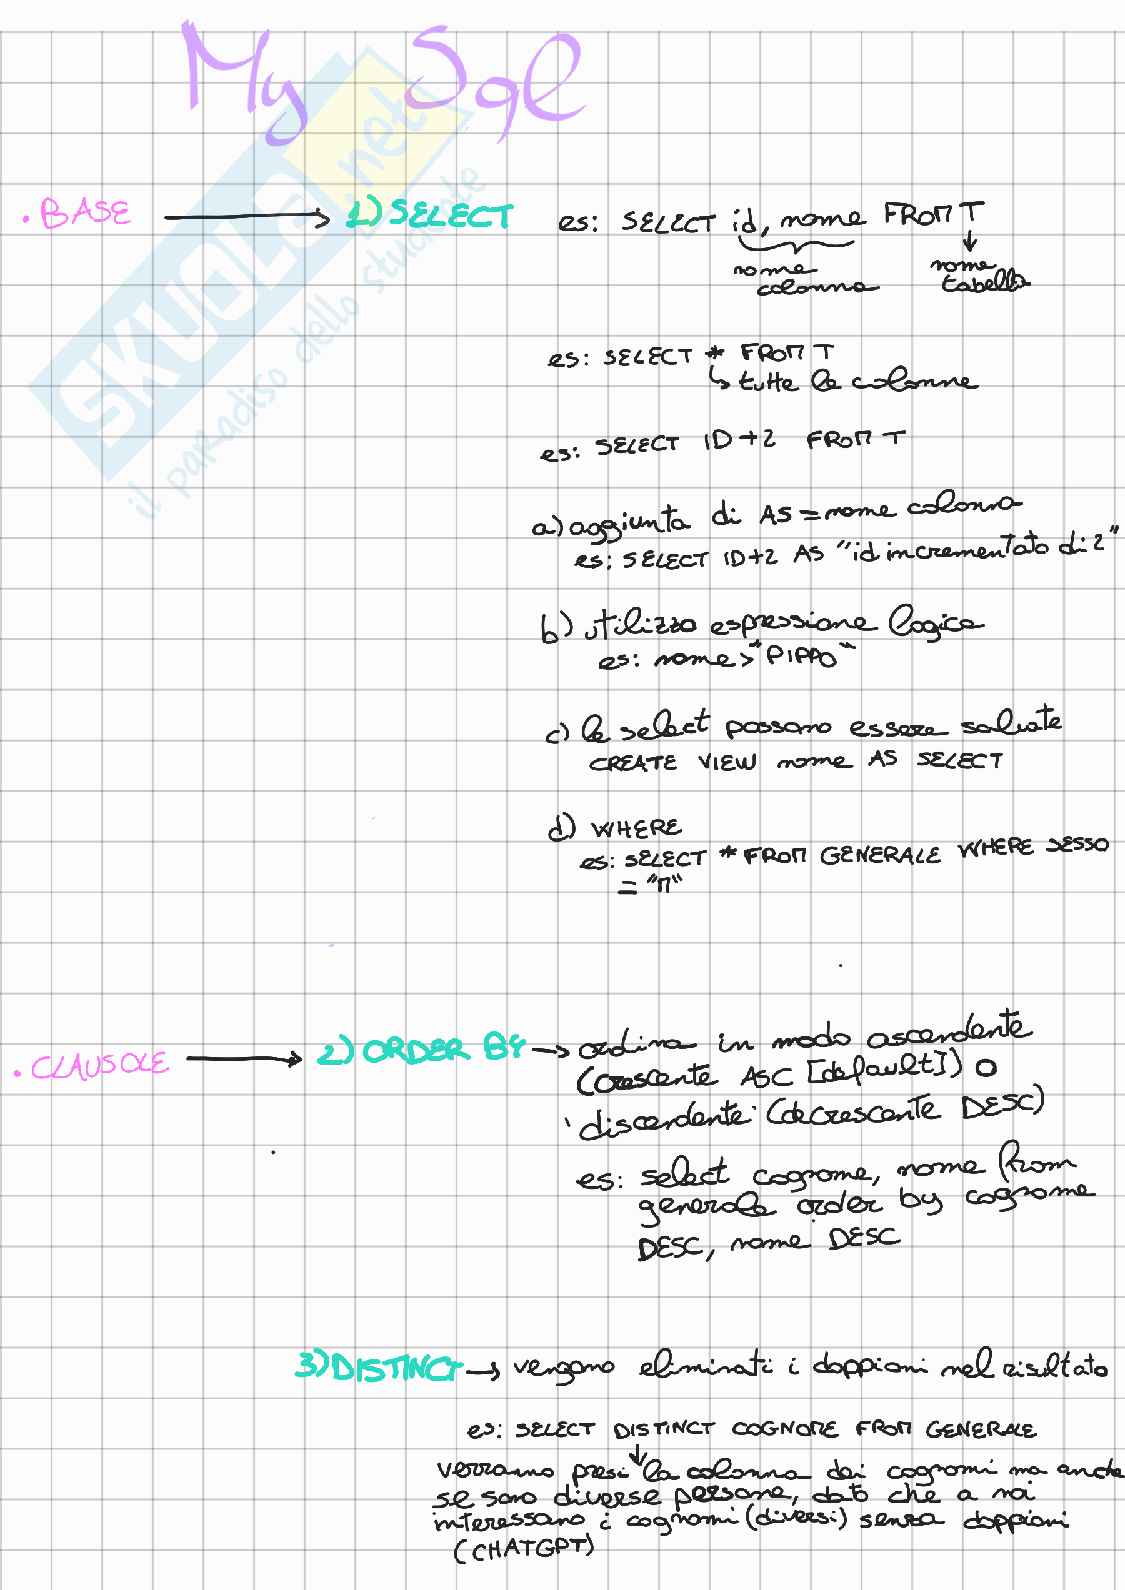 My Sql
SKUOLA.net
il paradiso dello studente
• BASE → 1) SELECT es: SELECT id, nome FROM T
nome colonna
nome tabella
es: SELECT * FROM T
↳ tutte le colonne
es: SELECT ID+2 FROM T
a) aggiunta di AS = nome colonna
es: SELECT ID+2 AS "id incrementato di 2"
b) utilizzo espressione logica
es: nome > "PIPPO"
c) le select possono essere salvate
CREATE VIEW nome AS SELECT
d) WHERE
es: SELECT * FROM GENERALE WHERE SESSO
= "M"
• CLAUSOLE → 2) ORDER BY → ordina in modo ascendente
(crescente ASC [default]) o
discendente (decrescente DESC)
es: select cognome, nome from
generale order by cognome
DESC, nome DESC
3) DISTINCT → vengono eliminati i doppioni nel risultato
es: SELECT DISTINCT COGNOME FROM GENERALE
verranno presi la colonna dei cognomi ma anche
se sono diverse persone, dato che a noi
interessano i cognomi (diversi) senza doppioni
(CHATGPT)